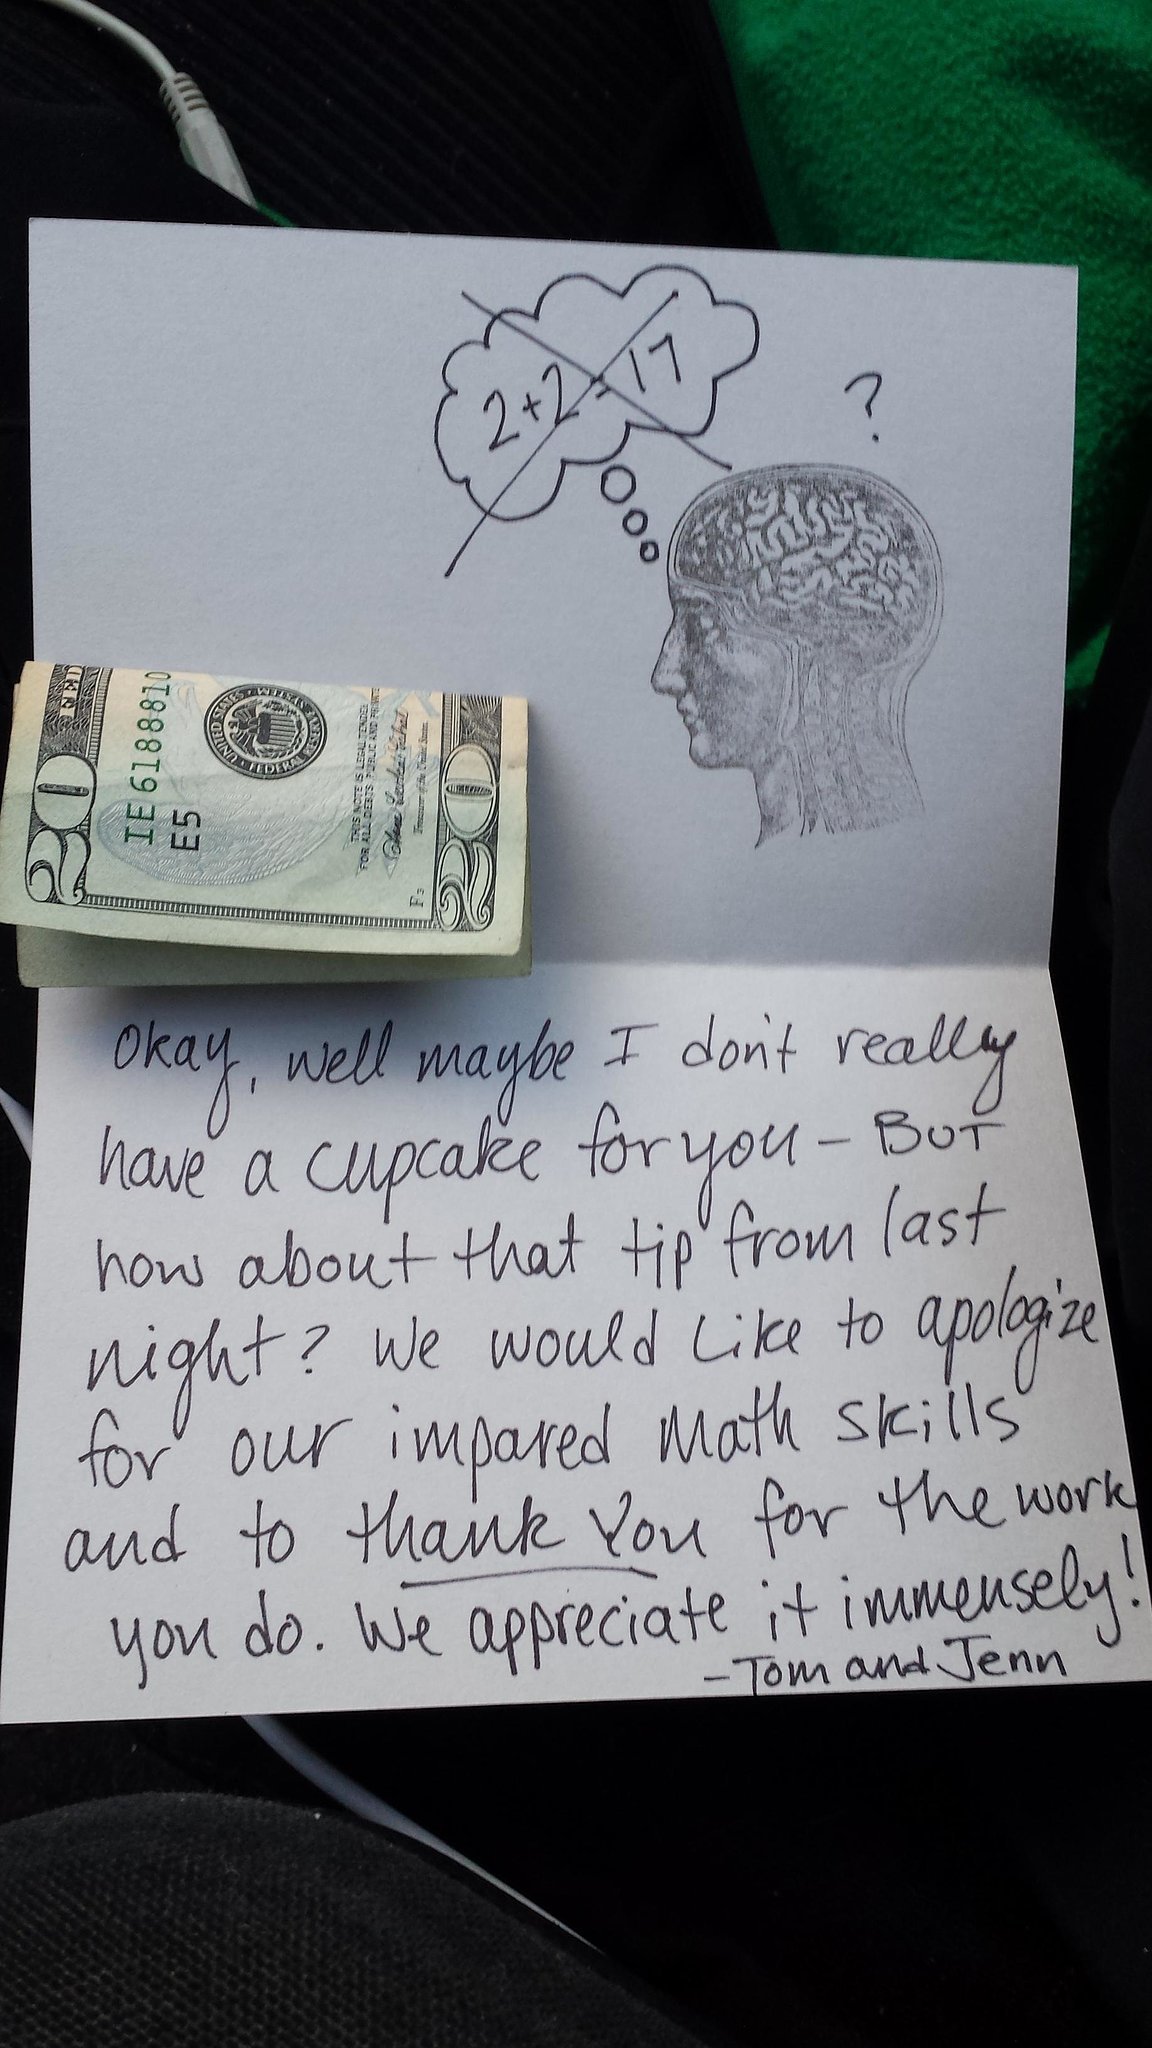 2+2=17
?
20
IE6188810
E5
UNITED STATES FEDERAL RESERVE SYSTEM
THIS NOTE IS LEGAL TENDER
FOR ALL DEBTS, PUBLIC AND PRIVATE
Treasurer of the United States.
F3
20
Okay, well maybe I don't really
have a cupcake for you - BUT
how about that tip from last
night? We would like to apologize
for our impared math skills
and to thank you for the work
you do. We appreciate it immensely!
-Tom and Jenn